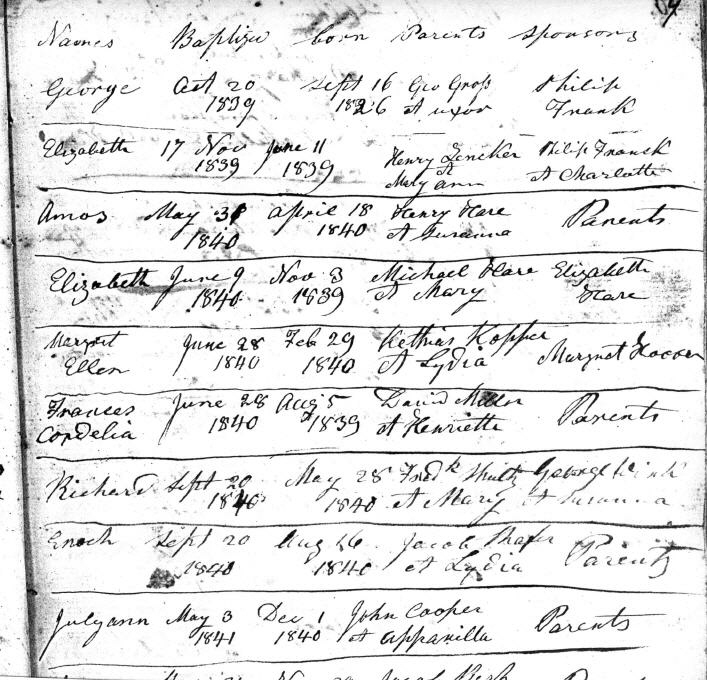 9
Names Baptize born Parents Sponsors
George Oct 20 Sept 16 Geo Gross Philip
1839 1826 et uxor Frank
Elizabeth 17 Nov June 11 Henry Philip
1839 1839 Mary ann et Charlotte
Amos May 31 April 18 Henry Hare Parents
1840 1840 et Susanna
Elizabeth June 9 Nov 3 Michael Hare Elizabeth
1840 1839 et Mary Hare
Margret June 28 Feb 29 Kopper
Ellen 1840 1840 et Lydia Margret
Frances June 28 Aug 5 David Miller Parents
Cordelia 1840 1839 et Henriette
Richard Sept 20 May 28 Fredk Shultz George
1840 1840 et Mary et Susanna
Enoch Sept 20 Aug 16 Jacob Shafer Parents
1840 1840 et Lydia
Julyann May 3 Dec 1 John Cooper Parents
1841 1840 et appanilla